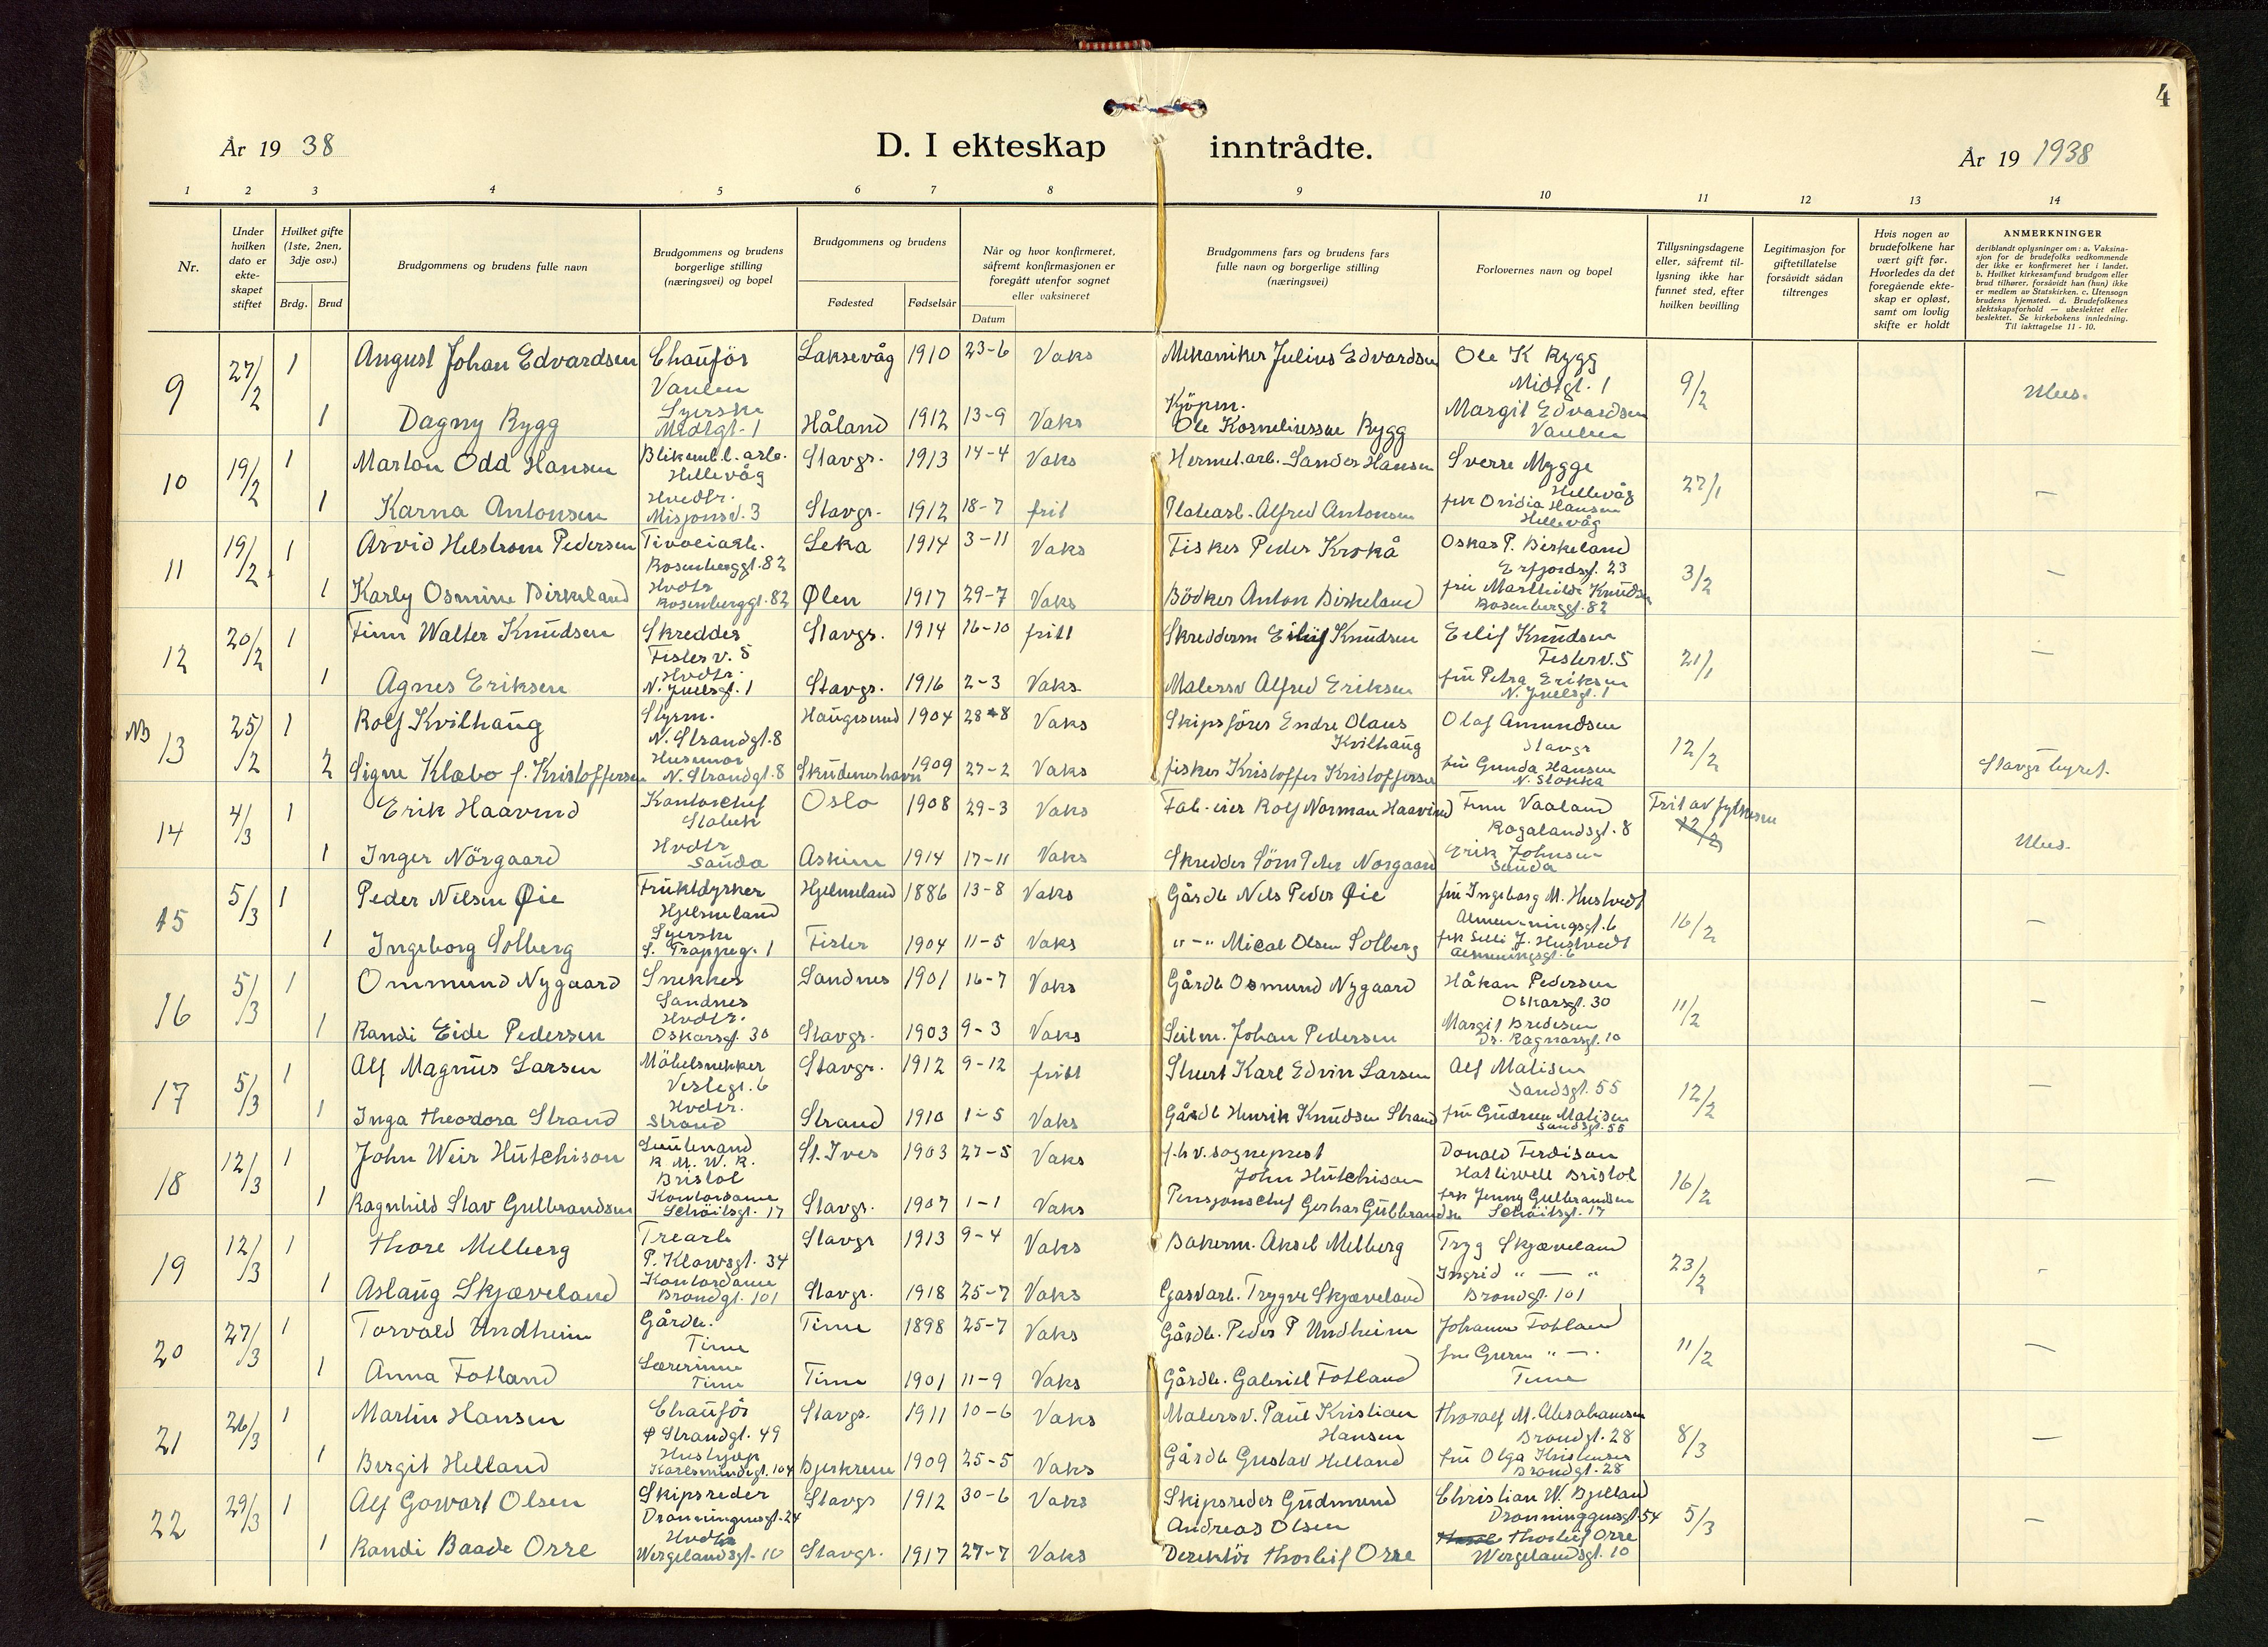 4
År 19 38
D. I ekteskap inntrådte.
År 19 1938
1 2 3 4 5 6 7 8 9 10 11 12 13 14
Nr.
Under hvilken dato er ekte-skapet stiftet
Hvilket gifte (1ste, 2nen, 3dje osv.)
Brdg. Brud
Brudgommens og brudens fulle navn
Brudgommens og brudens borgerlige stilling (næringsvei) og bopel
Brudgommens og brudens
Fødested Fødselsår
Når og hvor konfirmeret, såfremt konfirmasjonen er foregått utenfor sognet eller vaksineret
Datum
Brudgommens fars og brudens fars fulle navn og borgerlige stilling (næringsvei)
Forlovernes navn og bopel
Tillysningsdagene eller, såfremt til-lysning ikke har funnet sted, efter hvilken bevilling
Legitimasjon for giftetillatelse forsåvidt sådan tiltrenges
Hvis nogen av brudefolkene har vært gift før. Hvorledes da det foregående ekte-skap er opløst, samt om lovlig skifte er holdt
ANMERKNINGER
deriblandt oplysninger om: a. Vaksina-sjon for de brudefolks vedkommende der ikke er konfirmeret her i landet. b. Hvilket kirkesamfund brudgom eller brud tilhører, forsåvidt han (hun) ikke er medlem av Statskirken. c. Utensogn brudens hjemsted. d. Brudefolkenes slektskapsforhold — ubeslektet eller beslektet. Se kirkebokens innledning. Til iakttagelse 11 - 10.
9 27/2 1 August Johan Edvardsen Chauför Vaulen Laksevåg 1910 23-6 Vaks Mekaniker Julius Edvardsen Ole K Rygg Midtgt. 1 9/2
1 Dagny Rygg Syerske Midtgt. 1 Håland 1912 13-9 Vaks Kjöpm. Ole Korneliussen Rygg Margit Edvardsen Vaulen
10 19/2 1 Marton Odd Hansen Blikemb.l. arb. Hillevåg Stavgr. 1913 14-4 Vaks Hermet.arb. Sander Hansen Sverre Mygge Hillevåg 27/1 —
1 Karna Antonsen Husdtr. Misjonsv. 3 Stavgr. 1912 18-7 frit Platearb. Alfred Antonsen frk Ovidia Hansen Hillevåg
11 19/2 1 Arvid Helstrøm Pedersen Tivoliarb. Rosenberggt. 82 Leka 1914 3-11 Vaks Fisker Peder Krokå Oskar P. Birkeland Erfjordsgt. 23 3/2 —
1 Karly Osmine Birkeland Hvdtr Rosenberggt. 82 Ølen 1917 29-7 Vaks Bödker Anton Birkeland fru Marthilde Knudsen Rosenberggt. 82
12 20/2 1 Finn Walter Knudsen Skredder Fisterv. 5 Stavgr. 1914 16-10 fritt Skredderm Eilif Knudsen Eilif Knudsen Fisterv. 5 21/1 —
1 Agnes Eriksen Hvdtr. N. Juelsgt. 1 Stavgr. 1916 2-3 Vaks Malersv Alfred Eriksen fru Petra Eriksen N. Juelsgt. 1
NB 13 25/2 1 Rolf Kvilhaug Styrm. N. Strandgt. 8 Haugesund 1904 28-8 Vaks Skipsförer Endre Olaus Kvilhaug Olaf Amundsen Stavgr 12/2
2 Signe Klæbo f. Kristoffersen Husmor N. Strandgt. 8 Skudeneshavn 1909 27-2 Vaks fisker Kristoffer Kristoffersen fru Gunda Hansen N. Stokka Stavgr byret.
14 4/3 1 Erik Haavind Kontorchef Stabek Oslo 1908 29-3 Vaks Fab-eier Rolf Norman Haavind Finn Vaaland Rogalandsgt. 8 Frit av fylkesm 12/2
1 Inger Nörgaard Hvdtr Sauda Askim 1914 17-11 Vaks Skredder Sörn Peter Norgaard Erik Johnsen Sauda
15 5/3 1 Peder Nilsen Øie Fruktdyrker Hjelmeland Hjelmeland 1886 13-8 Vaks Gårdb Nils Peder Øie fru Ingeborg M. Hustvedt Almenningsgt. 6 16/2 —
1 Ingeborg Solberg Syerske S. Trappeg. 1 Fister 1904 11-5 Vaks "-" Mical Olsen Solberg frk Silli J. Hustvedt Almenningsgt. 6
16 5/3 1 Ommund Nygaard Snekker Sandnes Sandnes 1901 16-7 Vaks Gårdb Osmund Nygaard Håkan Pedersen Oskarsgt. 30 11/2 —
1 Randi Eide Pedersen Hvdtr. Oskarsgt. 30 Stavgr. 1903 9-3 Vaks Seilm. Johan Pedersen Margit Bredesen Dr. Ragnasgt. 10
17 5/3 1 Alf Magnus Larsen Möbelsnekker Veslegt. 6 Stavgr. 1912 9-12 fritt Stuert Karl Edvin Larsen Alf Malisen Sandsgt. 55 12/2 —
1 Inga Theodora Strand Hvdtr. Strand Strand 1910 1-5 Vaks Gårdb Henrik Knudsen Strand fru Gudrun Malisen Sandsgt. 55
18 12/3 1 John Weir Hutchison R. M. W. R. Bristol St. Ives 1903 27-5 Vaks f.h v. sogneprest John Hutchison Donald Ferdison Bristol 16/2 —
1 Ragnhild Stav Gulbrandsen Kontordame Schöitsgt. 17 Stavgr. 1907 1-1 Vaks Pensjonschef Gerhar Gulbrandsen frk Jenny Gulbrandsen Schöitsgt. 17
19 12/3 1 Thore Melberg Trearb P. Klowsgt. 34 Stavgr 1913 9-4 Vaks Bakerm. Aksel Melberg Tryg Skjæveland 23/2 -
1 Aslaug Skjæveland Kontordame Brondgt. 101 Stavgr. 1918 25-7 Vaks Gasvarb. Trygve Skjæveland Ingrid " — " Brondgt. 101
20 27/3 1 Torvald Undheim Gårdb. Time Time 1898 25-7 Vaks Gårdb. Peder P Undheim Johanne Fotland 11/2 —
1 Anna Fotland Lærerinne Time Time 1901 11-9 Vaks Gårdb. Gabriel Fotland fru " — . Time
21 26/3 1 Martin Hansen Chauför Ø Strandgt. 49 Stavgr. 1911 10-6 Vaks Malersv. Paul Kristian Hansen Thoralf M. Abrahamsen Brondgt. 28 8/3 —
1 Birgit Helland Hushjelp Karlsmindegt. 104 Bjerkreim 1909 25-5 Vaks Gårdb Gustav Helland fru Olga Kristensen Brondgt. 28
22 29/3 1 Alf Gowart Olsen Skipsreder Dronningensgt. 24 Stavgr 1912 30-6 Vaks Skipsreder Gudmund Andreas Olsen Christian W. Bjelland Dronninggensgt 54 5/3 —
1 Randi Baade Orre Hvdtr Wergelandsgt. 10 Stavgr. 1917 27-7 Vaks Direktör Thorleif Orre Thorleif Orre Wergelandsgt. 10